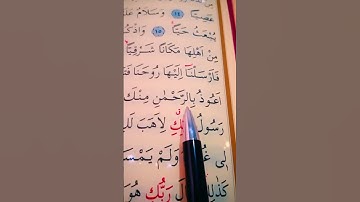 عَصِيًّا ﴿١٤﴾ وَسَلَامٌ عَلَ
يُبْعَثُ حَيًّا ﴿١٥﴾ وَاذْكُ
مِنْ اَهْلِهَا مَكَانًا شَرْقِيًّا
فَاَرْسَلْنَٓا اِلَيْهَا رُوحَنَا فَتَ
اَعُوذُ بِالرَّحْمٰنِ مِنْكَ
رَسُولُ بِّكِ لِاَهَبَ لَكِ
لِى غُ وَلَمْ يَمْسَ
كَذٰلِ لَ رَبُّكِ هُوَ